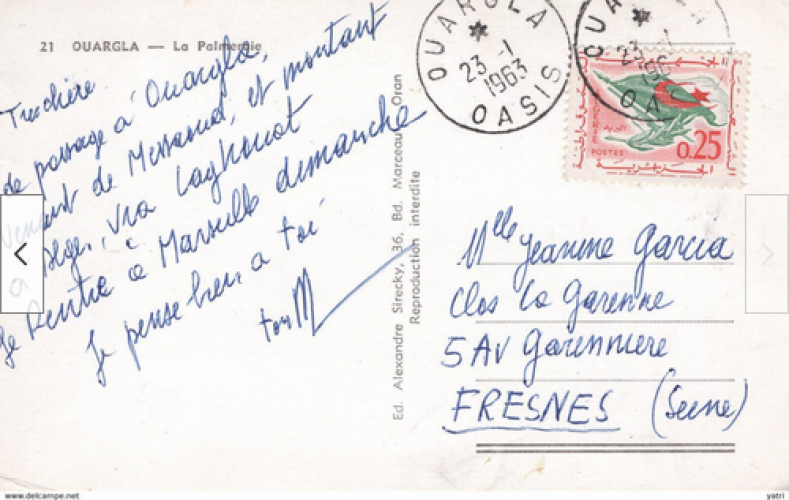 21 OUARGLA — La Palmeraie
Très chère
de passage à Ouargla,
Venant de Messaoud, et montant
a Alger, via Laghouat
Je Rentre à Marseille dimanche
Je pense bien à toi
ton M
Ed. Alexandre Sirecky, 36, Bd. Marceau Oran
Reproduction interdite
OUARGLA
23 -1
1963
OASIS
OUARGLA
23 -1
196
OA
POSTES
0.25
Mlle Jeanine Garcia
Clos La Garenne
5 AV Garenniere
FRESNES (Seine)
delcampe.net
yatri